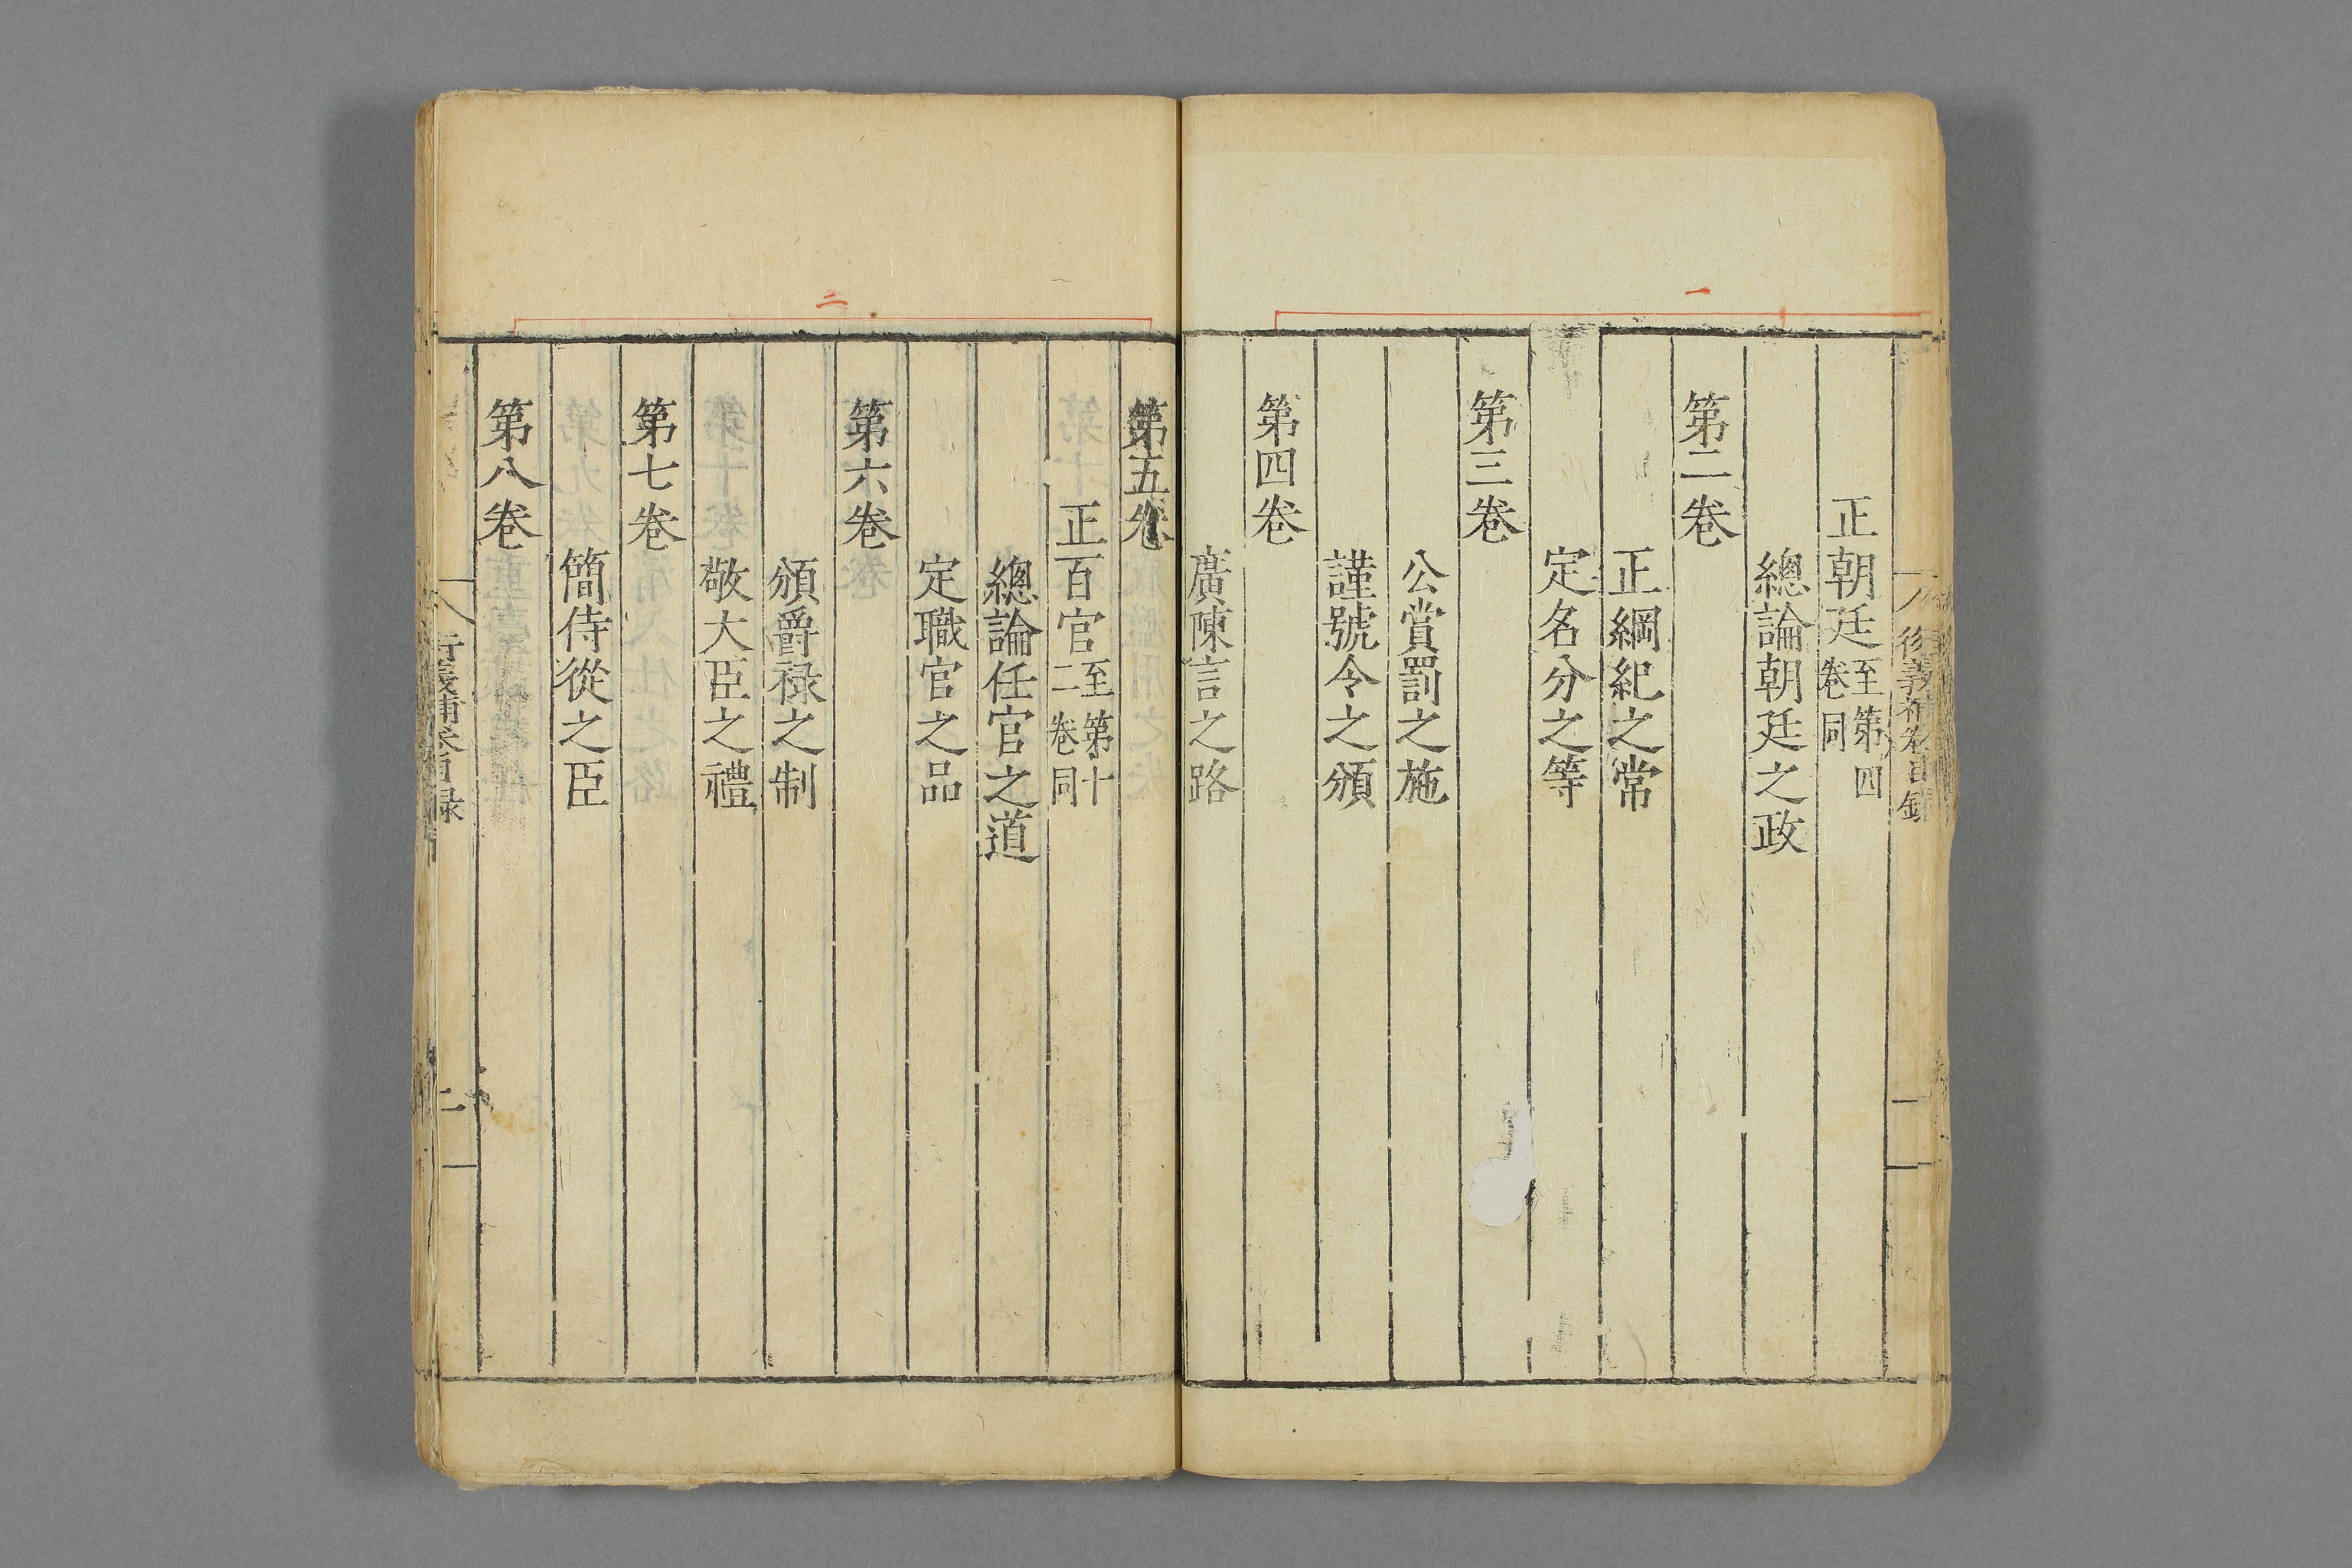 一
正朝廷至第四卷同
總論朝廷之政
第二卷
正綱紀之常
定名分之等
第三卷
公賞罰之施
謹號令之頒
第四卷
廣陳言之路
二
第五卷
正百官至第十二卷同
總論任官之道
定職官之品
第六卷
頒爵禄之制
敬大臣之禮
第七卷
簡侍從之臣
第八卷